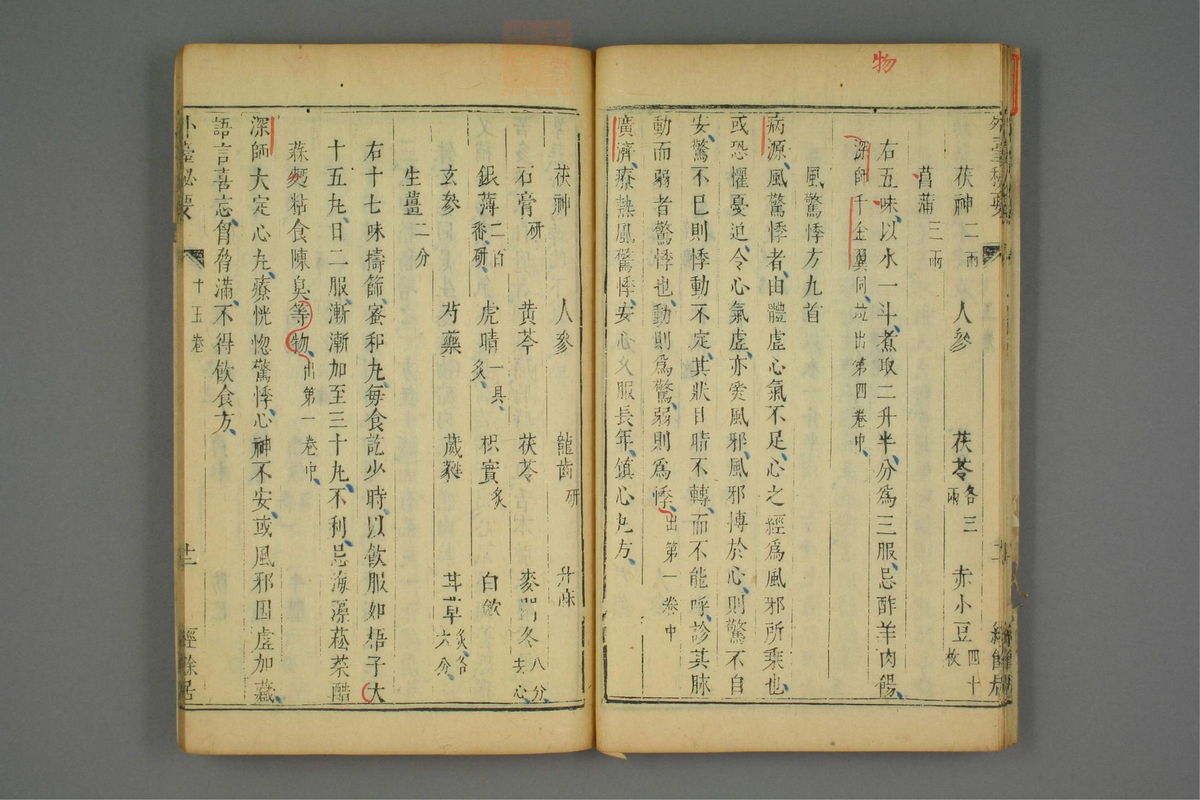 物
茯神二兩 人參 茯苓各三兩 赤小豆四十枚
菖蒲三兩
右五味、以水一斗、煮取二升半、分爲三服、忌酢羊肉餳、
深師千金翼同、竝出第四卷中、
風驚悸方九首
病源、風驚悸者、由體虛心氣不足、心之經爲風邪所乘也、
或恐懼憂迫、令心氣虛、亦受風邪、風邪搏於心、則驚不自
安、驚不已則悸動不定、其狀目睛不轉、而不能呼、診其脉
動而弱者驚悸也、動則爲驚、弱則爲悸、出第一卷中
廣濟、療熱風驚悸、安心久服長年、鎮心丸方、
茯神 人參 龍齒研 升麻
石膏研 黃芩 茯苓 麥門冬八分去心、
銀薄二百番、研、 虎睛一具、炙、 枳實炙 白斂
玄參 芍藥 葳蕤 甘草炙各六分、
生薑二分
右十七味、擣篩、蜜和丸、每食訖少時、以飲服如梧子大
十五丸、日二服、漸漸加至三十丸、不利、忌海藻菘菜醋
蒜麪粘食陳臭等物、出第一卷中、
深師大定心丸、療恍惚驚悸、心神不安、或風邪因虛加藏、
語言喜忘、胷脅滿、不得飲食方、
外臺秘要 十五卷 十二 經餘居